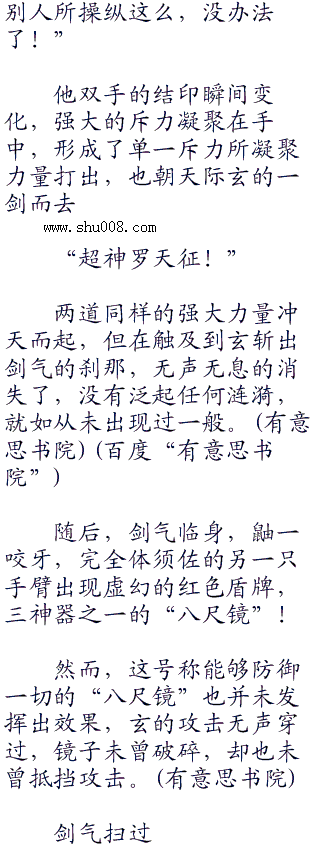 别人所操纵这么，没办法
了！”
他双手的结印瞬间变
化，强大的斥力凝聚在手
中，形成了单一斥力所凝聚
力量打出，也朝天际玄的一
剑而去
www.shu008.com
“超神罗天征！”
两道同样的强大力量冲
天而起，但在触及到玄斩出
剑气的刹那，无声无息的消
失了，没有泛起任何涟漪，
就如从未出现过一般。(有意
思书院)(百度“有意思书
院”)
随后，剑气临身，鼬一
咬牙，完全体须佐的另一只
手臂出现虚幻的红色盾牌，
三神器之一的“八尺镜”！
然而，这号称能够防御
一切的“八尺镜”也并未发
挥出效果，玄的攻击无声穿
过，镜子未曾破碎，却也未
曾抵挡攻击。(有意思书院)
剑气扫过